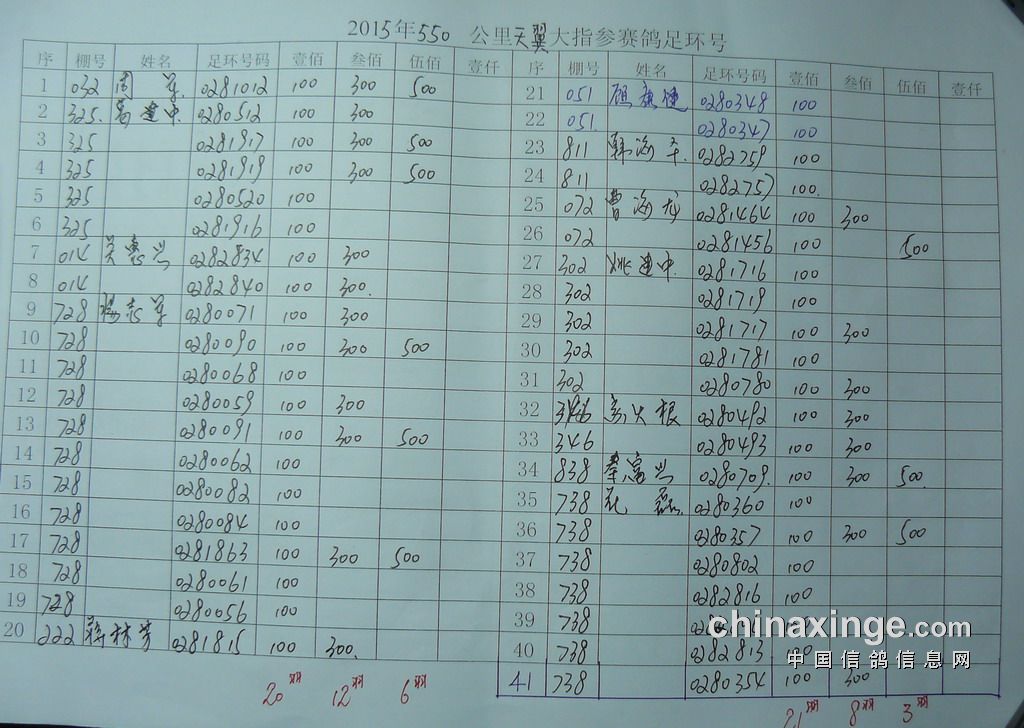 2015年550 公里天翼大指参赛鸽足环号
序 棚号 姓名 足环号码 壹佰 叁佰 伍佰 壹仟
1 032 周 军 0281012 100 300 500
2 325 葛建中 0280512 100 300
3 325 0281917 100 300 500
4 325 0281919 100 300 500
5 325 0280520 100
6 325 0281916 100
7 014 吴惠兴 0282834 100 300
8 014 0282840 100 300
9 728 杨志军 0280071 100 300
10 728 0280090 100 300 500
11 728 0280068 100
12 728 0280059 100 300
13 728 0280091 100 300 500
14 728 0280062 100
15 728 0280082 100
16 728 0280084 100
17 728 0281863 100 300 500
18 728 0280061 100
19 728 0280056 100
20 222 蒋林芳 0281815 100 300
20羽 12羽 6羽
序 棚号 姓名 足环号码 壹佰 叁佰 伍佰 壹仟
21 051 0280348 100
22 051 0280347 100
23 811 韩海平 0282759 100
24 811 0282757 100
25 072 曹海龙 0281464 100 300
26 072 0281456 100 500
27 302 姚建中 0281716 100
28 302 0281719 100
29 302 0281717 100 300
30 302 0281781 100
31 302 0280780 100 300
32 346 火根 0280492 100 300
33 346 0280493 100 300
34 838 秦富兴 0280709 100 300 500
35 738 孔 磊 0280360 100
36 738 0280357 100 300 500
37 738 0280802 100
38 738 0282816 100
39 738
40 738 0282813 100
41 738 0280354 100 300
21羽 8羽 3羽
chinaxinge.com
中国信鸽信息网